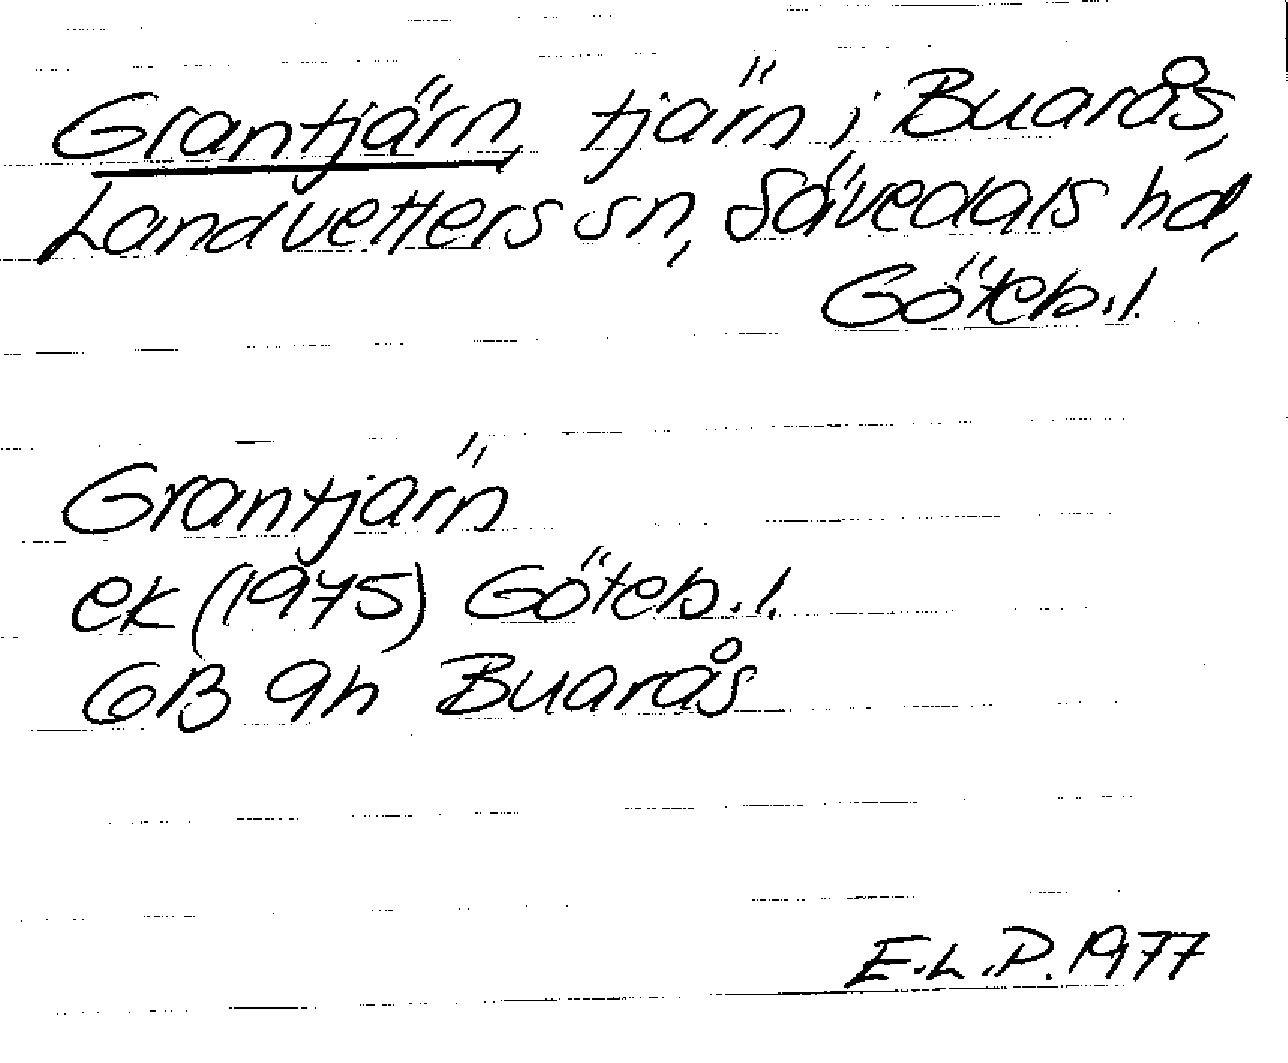 Grantjärn, tjärn i Buarås,
Landvetters sn, Sävedals hd,
Göteb.l.
Grantjärn
ek (1975) Göteb.l.
GB 9h Buarås
E.L.P. 1977